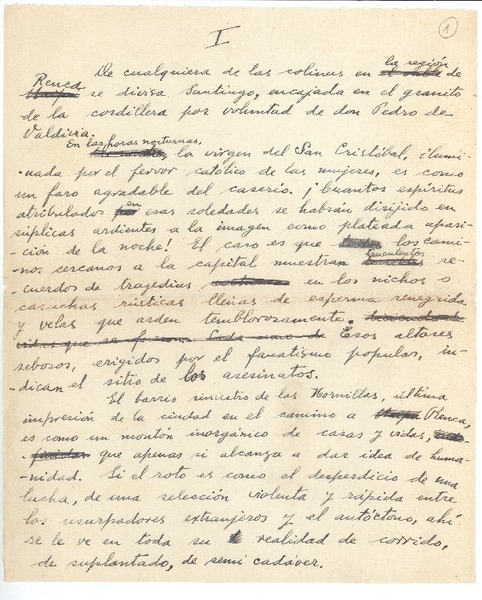 1
I
la región
De cualquiera de las colinas en el valle de
Renca
se divisa Santiago, encajada en el granito
de la cordillera por voluntad de don Pedro de
Valdivia.
En las horas nocturnas,
la virgen del San Cristóbal, ilumi-
-nada por el fervor católico de las mujeres, es como
un faro agradable del caserío. ¡Cuantos espíritus
atribulados en esas soledades se habrán dirijido en
súplicas ardientes a la imagen como plateada apari-
-ción de la noche! El caso es que los cami-
-nos cercanos a la capital muestran truculentos re-
-cuerdos de tragedias en los nichos o
casuchas rústicas llenas de esperma renegrida
y velas que arden temblorosamente.
Cada uno de Esos altares
sebosos, erigidos por el fanatismo popular, in-
-dican el sitio de los asesinatos.
El barrio sinuatico de las Hornillas, última
impresión de la ciudad en el camino a Renca,
es como un montón inorgánico de casas y vidas,
que apenas si alcanza a dar idea de huma-
-nidad. Si el roto es como el desperdicio de una
lucha, de una selección violenta y rápida entre
los usurpadores extranjeros y el autóctono, ahí
se le ve en toda su realidad de corrido,
de suplantado, de semi cadáver.